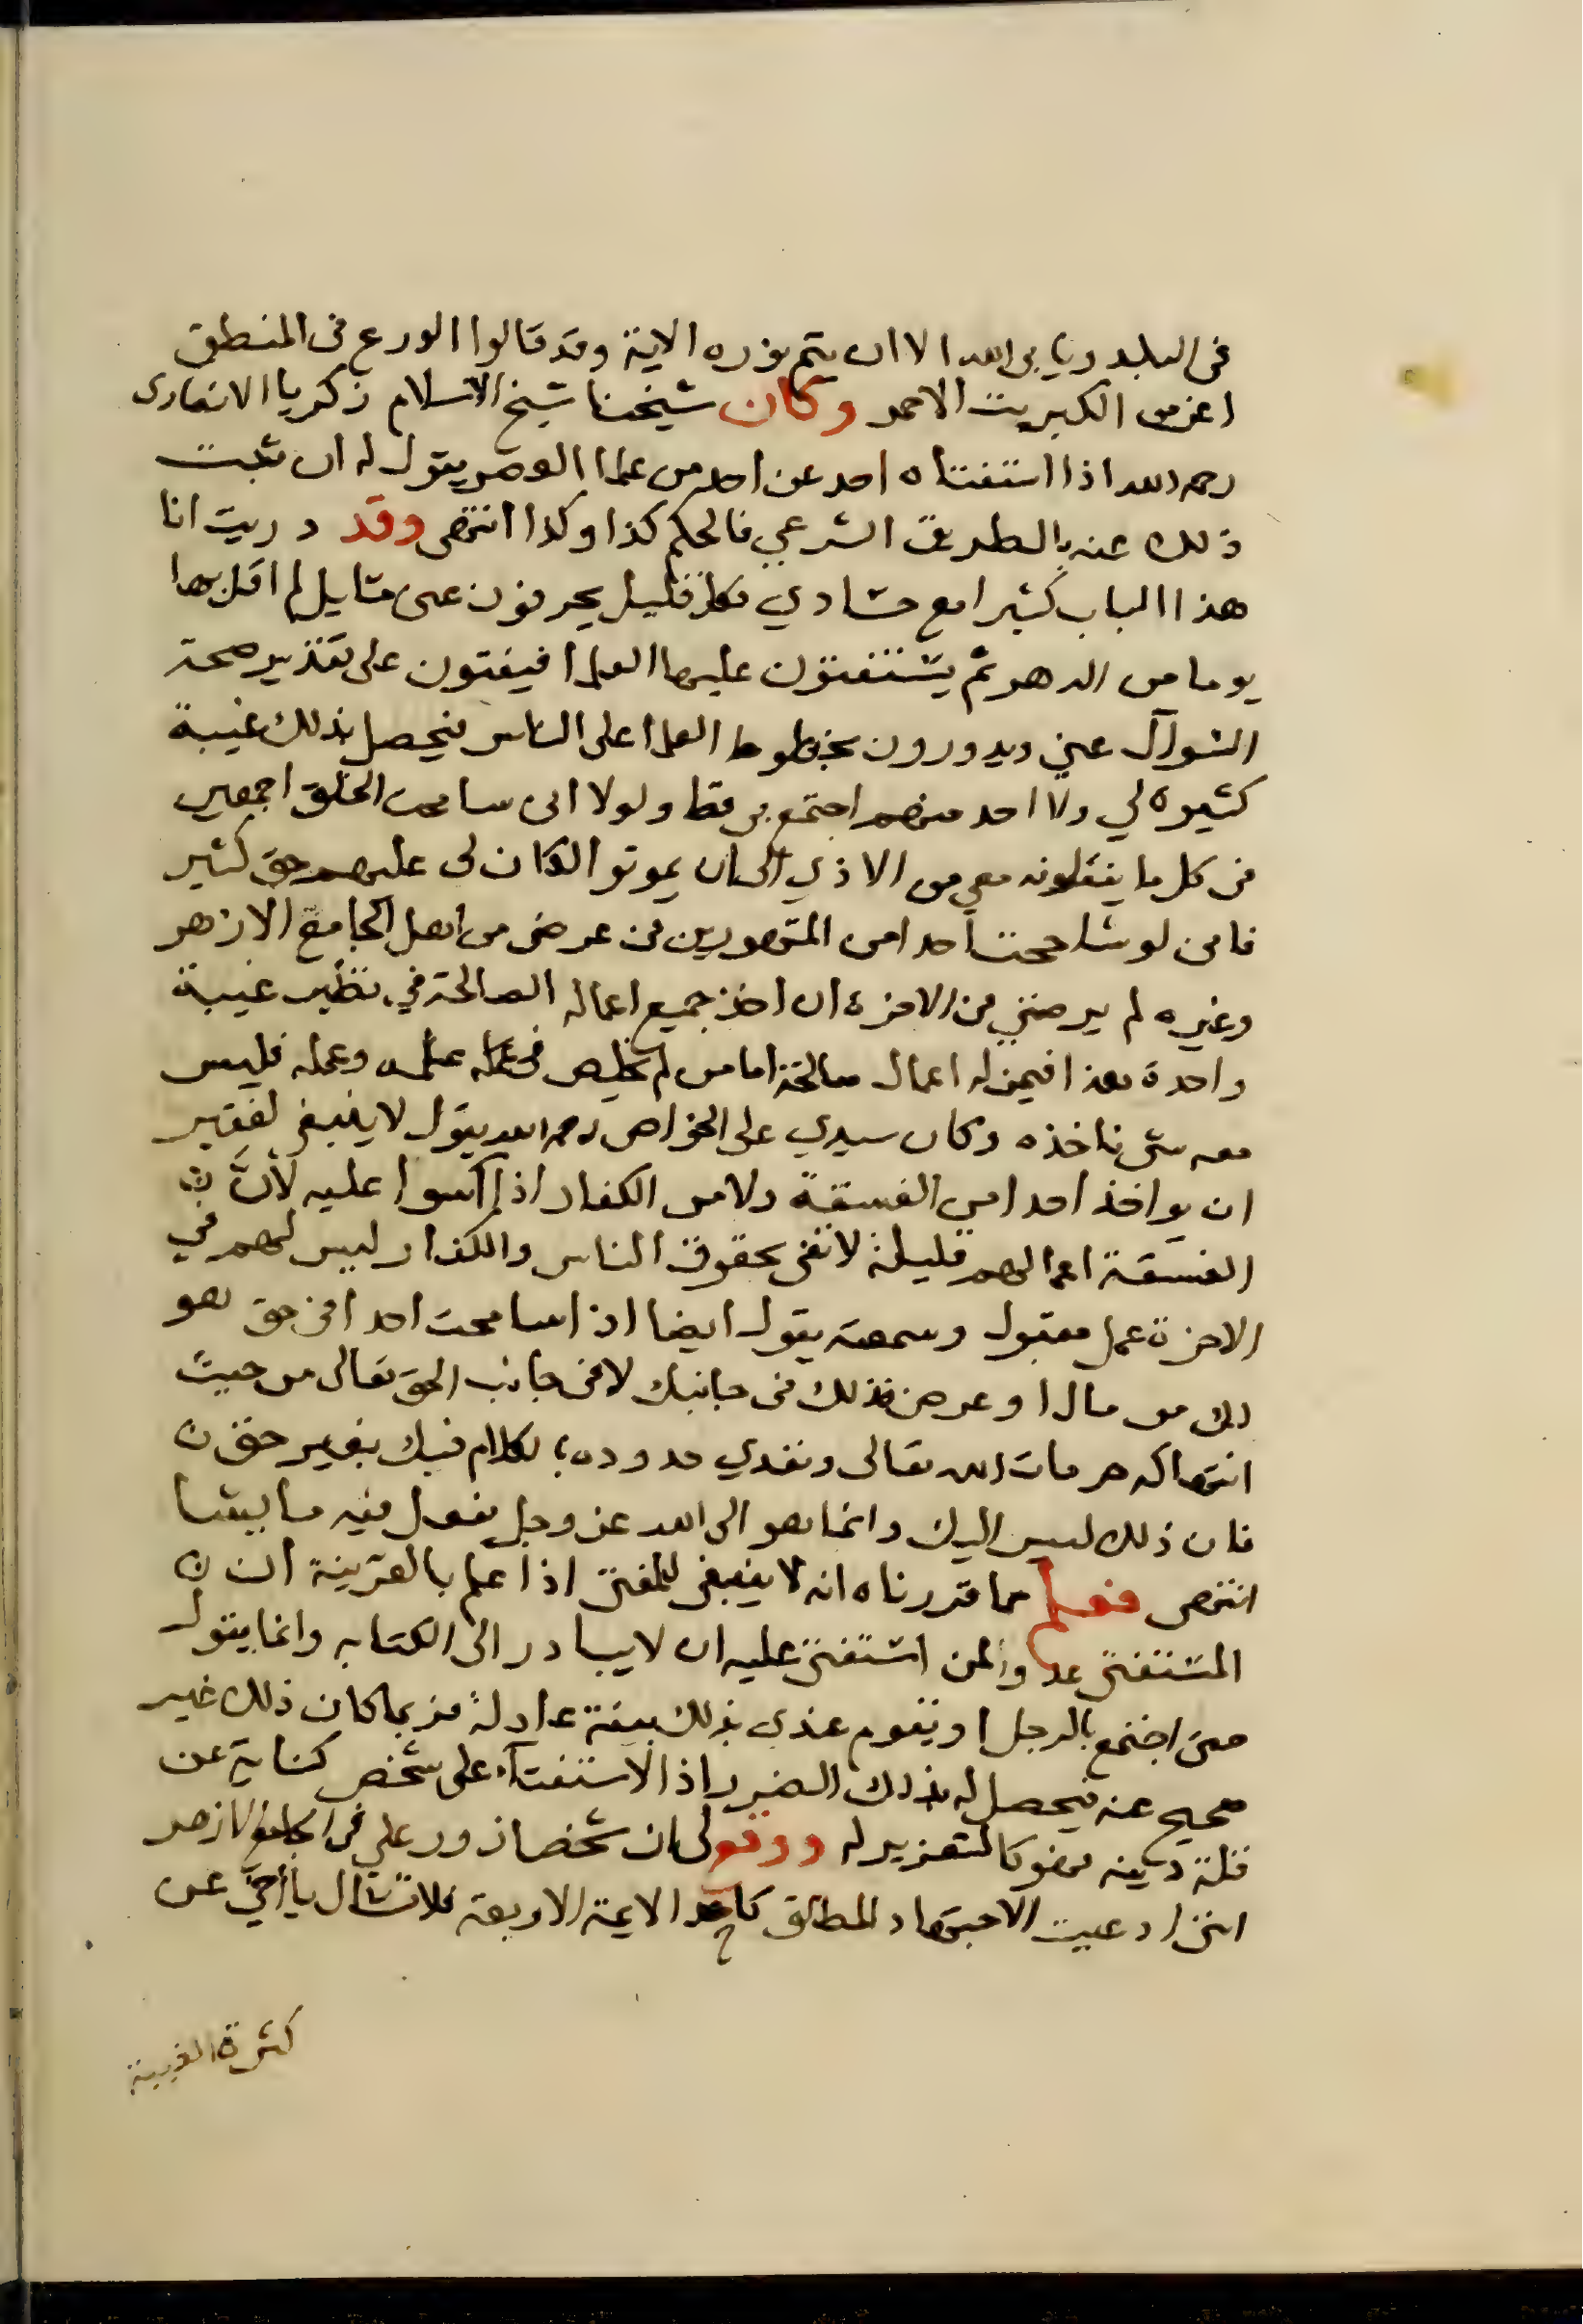 فى البلد ويابى الله الا ان يتم نوره الاية وقد قالوا الورع فى المنطق
اعز من الكبريت الاحمر وكان شيخنا شيخ الاسلام زكريا الانصارى
رحمه الله اذا استفتاه احد عن احد من علما العصر يقول له ان ثبت
ذلك عنه بالطريق الشرعي فالحكم كذا وكذا انتهى وقد دريت انا
هذا الباب كثيرا مع حسادي فكل قليل يحرفون عنى مسايل لم اقل بها
يوما من الدهر ثم يستفتون عليها العلما فيفتون على تقدير صحة
السوآل عني ويدورون بخطوط العلما على الناس فيحصل بذلك غيبة
كثيرة لي ولا احد منهم اجتمع بى قط ولولا انى سامحت الخلق اجمعين
فى كل ما يفعلونه معي من الاذي الى ان يموتوا لكان لى عليهم حق كثير
فانى لو شاححت احدا من المتهورين فى عرضى من اهل الجامع الازهر
وغيره لم يرضني فى الاخرة ان اخذ جميع اعماله الصالحة في نظير غيبة
واحدة هذا فيمن له اعمال صالحة اما من لم يخلص فى علمه وعمله فليس
معه شى ناخذه وكان سيدي على الخواص رحمه الله يقول لا ينبغى لفقير
ان يواخذ احدا من الفسقة ولا من الكفار اذا اسوا عليه لأنَّ
الفسقة اعمالهم قليلة لا تفى بحقوق الناس والكفار ليس لهم في
الاخرة عمل مقبول وسمعته يقول ايضا اذا سامحت احدا فى حق هو
لك من مال او عرض فذلك فى جانبك لا فى جانب الحق تعالى من حيث
انتهاكه حرمات الله تعالى وتعدي حدوده بالكلام فيك بغير حق
فان ذلك ليس اليك وانما هو الى الله عز وجل يفعل فيه ما يشا
انتهى فعلم مما قررناه انه لا ينبغى للمفتى اذا علم بالقرينة ان
المستفتى عدو لمن استفتى عليه ان لا يبادر الى الكتابه وانما يقول
حتى اجتمع بالرجل او تقوم عندى بذلك بينة عادلة فربما كان ذلك غير
صحيح عنه فيحصل له بذلك الضرر اذ الاستفتآء على شخص كناية عن
قلة دينه فهو كالتعزير له ووقع لى ان شخصا زور على فى الجامع الازهر
اننى ادعيت الاجتهاد المطلق كاحد الايمة الاربعة فلا تسال يا أخيَّ عن
كثرة الغيبة